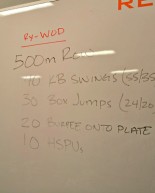 RE
Ry-WOD
500m Row
40 KB SWINGS (55/35
30 Box Jumps (24/20
20 BURPEE ONTO PLATE
10 HSPUs